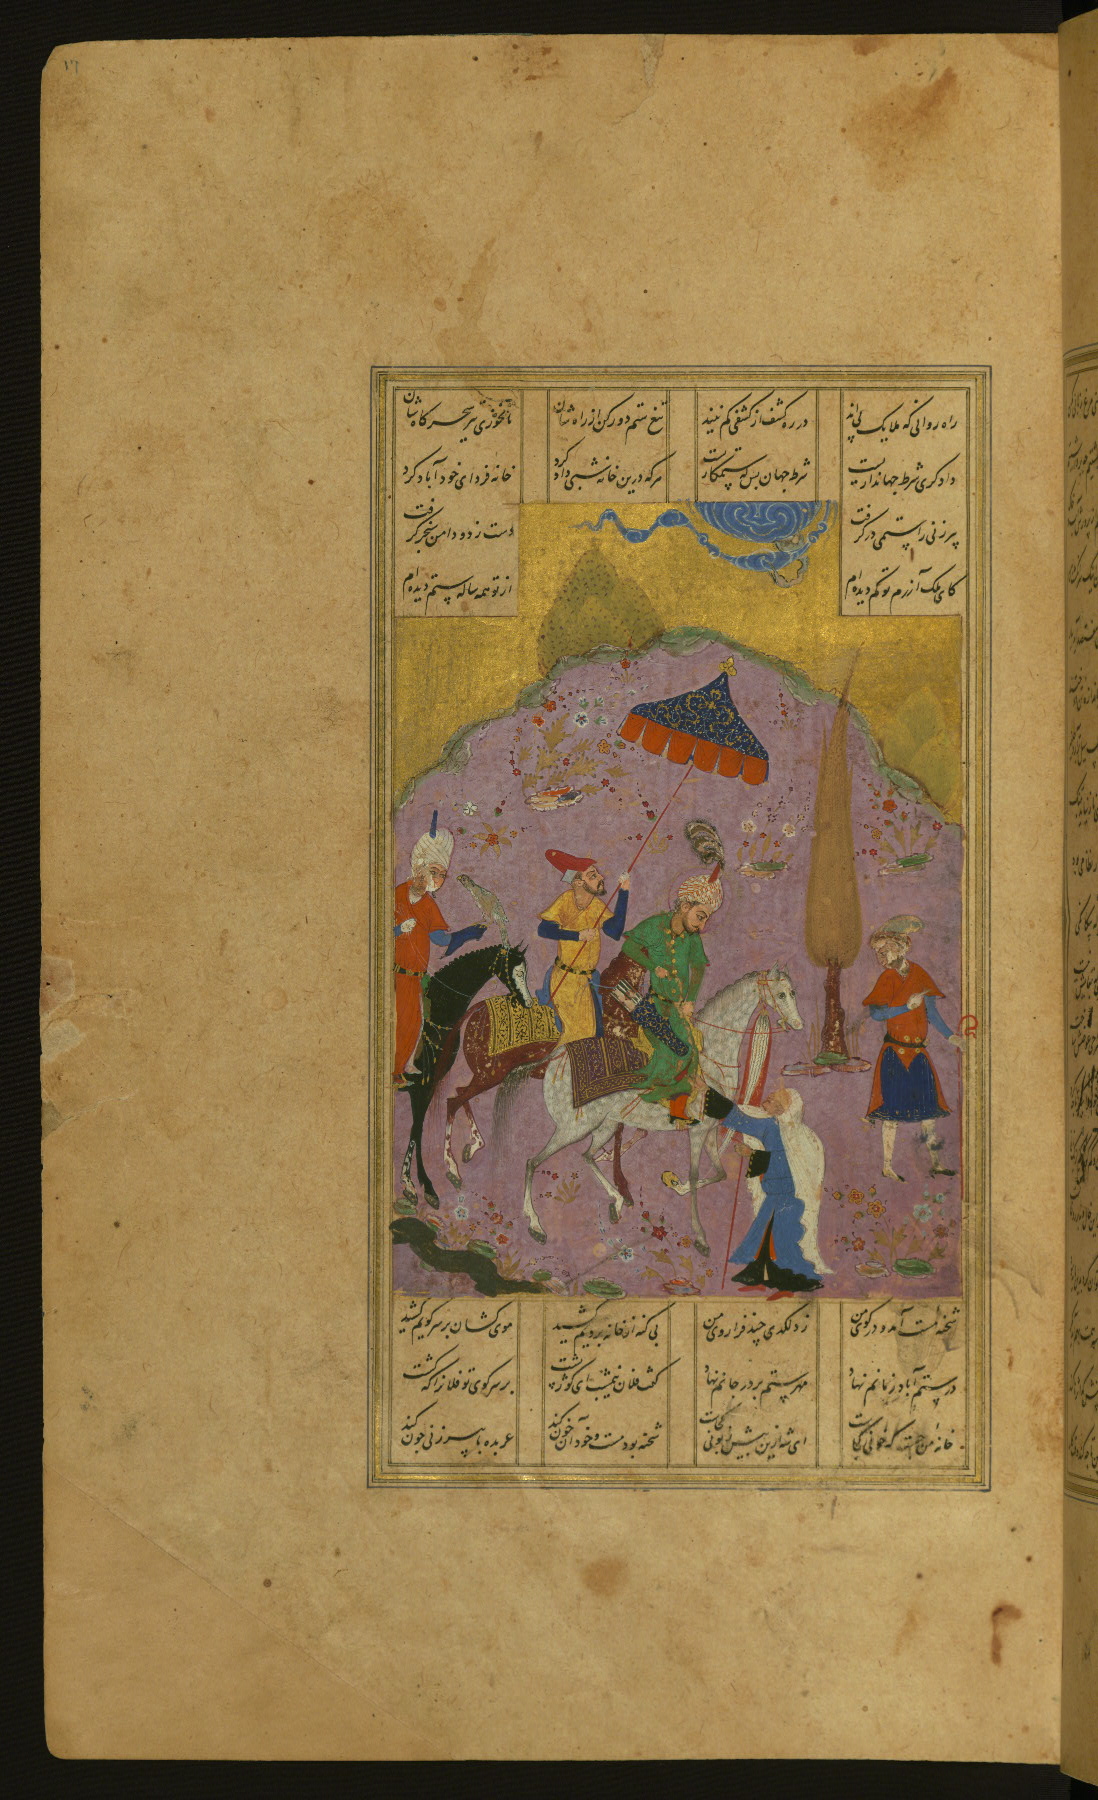 راه روانی که ملایک پی‌اند در ره کشف از کشفی کم نیند تیغ ستم دور کن از راه شان تا نخوری تیر سحرگاه شان
دادگری شرط جهانداریست شرط جهان بس که ستمکاریست هرکه درین خانه شبی داد کرد خانه فردای خود آباد کرد
پیرزنی را ستمی درگرفت دست زد و دامن سنجر گرفت
کای ملک آزرم تو کم دیده‌ام از تو همه ساله ستم دیده‌ام
شحنه مست آمد و در کوی من زد لگدی چند فرا روی من بی گنه از خانه برویم کشید موی کشان بر سر کویم کشید
در ستم آباد زمانم نهاد مهر ستم بر در جانم نهاد گفت فلان نیمشب ای کوژپشت بر سر کوی تو فلانرا که کشت
خانه من جست که خونی کجاست ای شه ازین بیش زبونی کجاست شحنه بود مست و خود آن خون کند عربده با پیرزنی چون کند